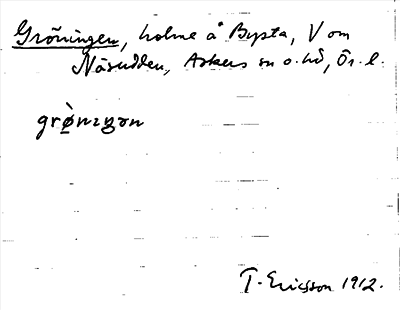 Gröningen, holme å Bysta, V om
Näsudden, Askers sn o. hd, Ör. l.
grø̀nıŋən
T. Ericsson 1912.